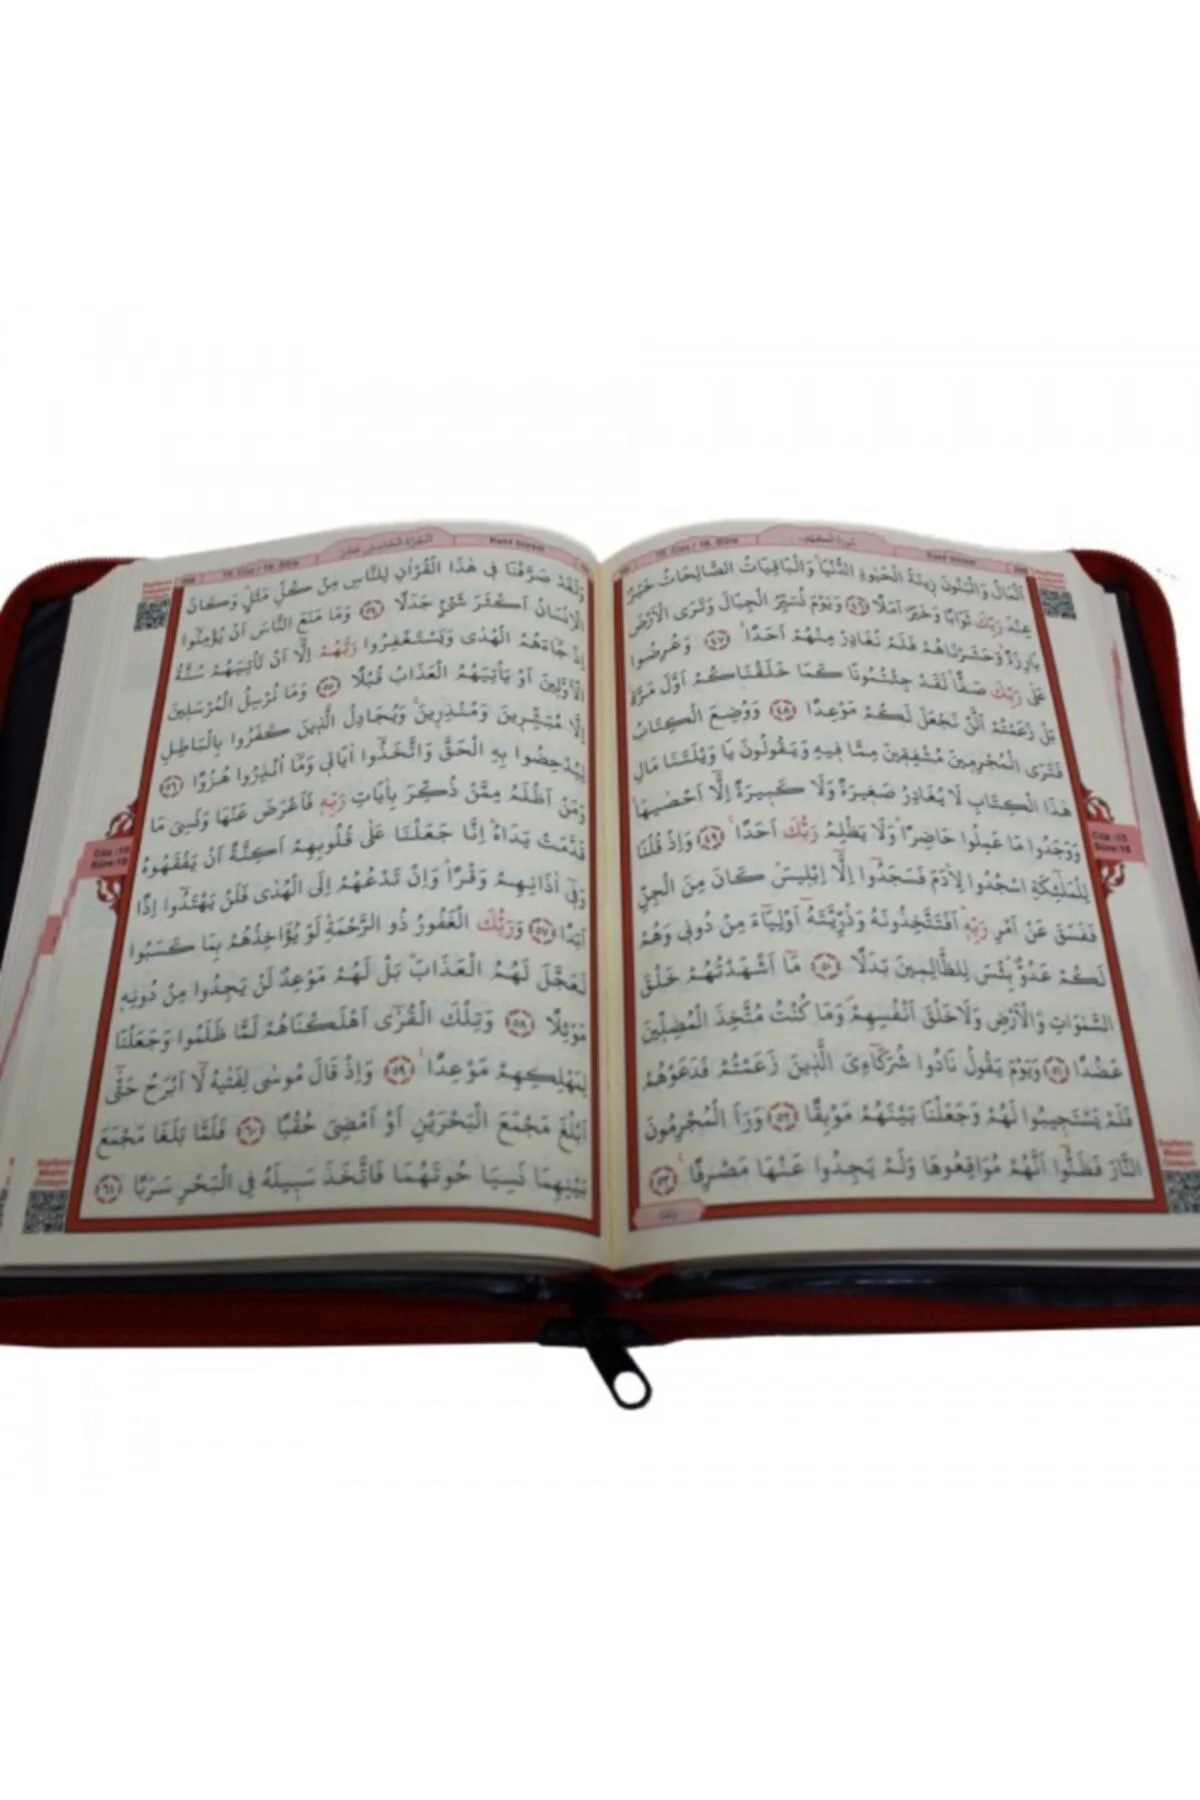 15. Cüz / 18. Sûre
سُورَةُ الْكَهْفِ
Kehf Sûresi
اَلْمَالُ وَالْبَنُونَ زِينَةُ الْحَيٰوةِ الدُّنْيَاۚ وَالْبَاقِيَاتُ الصَّالِحَاتُ خَيْرٌ
عِنْدَ رَبِّكَ ثَوَابًا وَخَيْرٌ اَمَلًا ﴿٤٦﴾ وَيَوْمَ نُسَيِّرُ الْجِبَالَ وَتَرَى الْاَرْضَ
بَارِزَةًۙ وَحَشَرْنَاهُمْ فَلَمْ نُغَادِرْ مِنْهُمْ اَحَدًاۚ ﴿٤٧﴾ وَعُرِضُوا
عَلٰى رَبِّكَ صَفًّاۜ لَقَدْ جِئْتُمُونَا كَمَا خَلَقْنَاكُمْ اَوَّلَ مَرَّةٍۘ
بَلْ زَعَمْتُمْ اَلَّنْ نَجْعَلَ لَكُمْ مَوْعِدًا ﴿٤٨﴾ وَوُضِعَ الْكِتَابُ
فَتَرَى الْمُجْرِمِينَ مُشْفِقِينَ مِمَّا فِيهِ وَيَقُولُونَ يَا وَيْلَتَنَا مَالِ
هٰذَا الْكِتَابِ لَا يُغَادِرُ صَغِيرَةً وَلَا كَبِيرَةً اِلَّٓا اَحْصٰيهَاۚ
وَوَجَدُوا مَا عَمِلُوا حَاضِرًاۜ وَلَا يَظْلِمُ رَبُّكَ اَحَدًا۟ ﴿٤٩﴾ وَاِذْ قُلْنَا
لِلْمَلٰٓئِكَةِ اسْجُدُوا لِاٰدَمَ فَسَجَدُٓوا اِلَّٓا اِبْلِيسَۜ كَانَ مِنَ الْجِنِّ
فَفَسَقَ عَنْ اَمْرِ رَبِّهٖۜ اَفَتَتَّخِذُونَهُ وَذُرِّيَّتَهُٓ اَوْلِيَٓاءَ مِنْ دُونِي وَهُمْ
لَكُمْ عَدُوٌّۜ بِئْسَ لِلظَّالِمِينَ بَدَلًا ﴿٥٠﴾ مَٓا اَشْهَدْتُهُمْ خَلْقَ
السَّمٰوَاتِ وَالْاَرْضِ وَلَا خَلْقَ اَنْفُسِهِمْۖ وَمَا كُنْتُ مُتَّخِذَ الْمُضِلِّينَ
عَضُدًا ﴿٥١﴾ وَيَوْمَ يَقُولُ نَادُوا شُرَكَٓاءِيَ الَّذِينَ زَعَمْتُمْ فَدَعَوْهُمْ
فَلَمْ يَسْتَجِيبُوا لَهُمْ وَجَعَلْنَا بَيْنَهُمْ مَوْبِقًا ﴿٥٢﴾ وَرَاَ الْمُجْرِمُونَ
النَّارَ فَظَنُّٓوا اَنَّهُمْ مُوَاقِعُوهَا وَلَمْ يَجِدُوا عَنْهَا مَصْرِفًا۟ ﴿٥٣﴾
Cüz :15
Sûre:18
15. Cüz / 18. Sûre
اَلْجُزْءُ الْخَامِسُ عَشَرَ
Kehf Sûresi
وَلَقَدْ صَرَّفْنَا فِي هٰذَا الْقُرْاٰنِ لِلنَّاسِ مِنْ كُلِّ مَثَلٍۜ وَكَانَ
الْاِنْسَانُ اَكْثَرَ شَيْءٍ جَدَلًا ﴿٥٤﴾ وَمَا مَنَعَ النَّاسَ اَنْ يُؤْمِنُٓوا
اِذْ جَٓاءَهُمُ الْهُدٰى وَيَسْتَغْفِرُوا رَبَّهُمْ اِلَّٓا اَنْ تَأْتِيَهُمْ سُنَّةُ
الْاَوَّلِينَ اَوْ يَأْتِيَهُمُ الْعَذَابُ قُبُلًا ﴿٥٥﴾ وَمَا نُرْسِلُ الْمُرْسَلِينَ
اِلَّا مُبَشِّرِينَ وَمُنْذِرِينَۚ وَيُجَادِلُ الَّذِينَ كَفَرُوا بِالْبَاطِلِ
لِيُدْحِضُوا بِهِ الْحَقَّ وَاتَّخَذُٓوا اٰيَاتِي وَمَٓا اُنْذِرُوا هُزُوًا ﴿٥٦﴾
وَمَنْ اَظْلَمُ مِمَّنْ ذُكِّرَ بِاٰيَاتِ رَبِّهٖ فَاَعْرَضَ عَنْهَا وَنَسِيَ مَا
قَدَّمَتْ يَدَاهُۜ اِنَّا جَعَلْنَا عَلٰى قُلُوبِهِمْ اَكِنَّةً اَنْ يَفْقَهُوهُ
وَفِٓي اٰذَانِهِمْ وَقْرًاۜ وَاِنْ تَدْعُهُمْ اِلَى الْهُدٰى فَلَنْ يَهْتَدُٓوا اِذًا
اَبَدًا ﴿٥٧﴾ وَرَبُّكَ الْغَفُورُ ذُو الرَّحْمَةِۜ لَوْ يُؤَاخِذُهُمْ بِمَا كَسَبُوا
لَعَجَّلَ لَهُمُ الْعَذَابَۜ بَلْ لَهُمْ مَوْعِدٌ لَنْ يَجِدُوا مِنْ دُونِهٖ
مَوْئِلًا ﴿٥٨﴾ وَتِلْكَ الْقُرٰٓى اَهْلَكْنَاهُمْ لَمَّا ظَلَمُوا وَجَعَلْنَا
لِمَهْلِكِهِمْ مَوْعِدًا۟ ﴿٥٩﴾ وَاِذْ قَالَ مُوسٰى لِفَتٰيهُ لَٓا اَبْرَحُ حَتّٰٓى
اَبْلُغَ مَجْمَعَ الْبَحْرَيْنِ اَوْ اَمْضِيَ حُقُبًا ﴿٦٠﴾ فَلَمَّا بَلَغَا مَجْمَعَ
بَيْنِهِمَا نَسِيَا حُوتَهُمَا فَاتَّخَذَ سَبِيلَهُ فِي الْبَحْرِ سَرَبًا ﴿٦١﴾
Cüz :15
Sûre:18